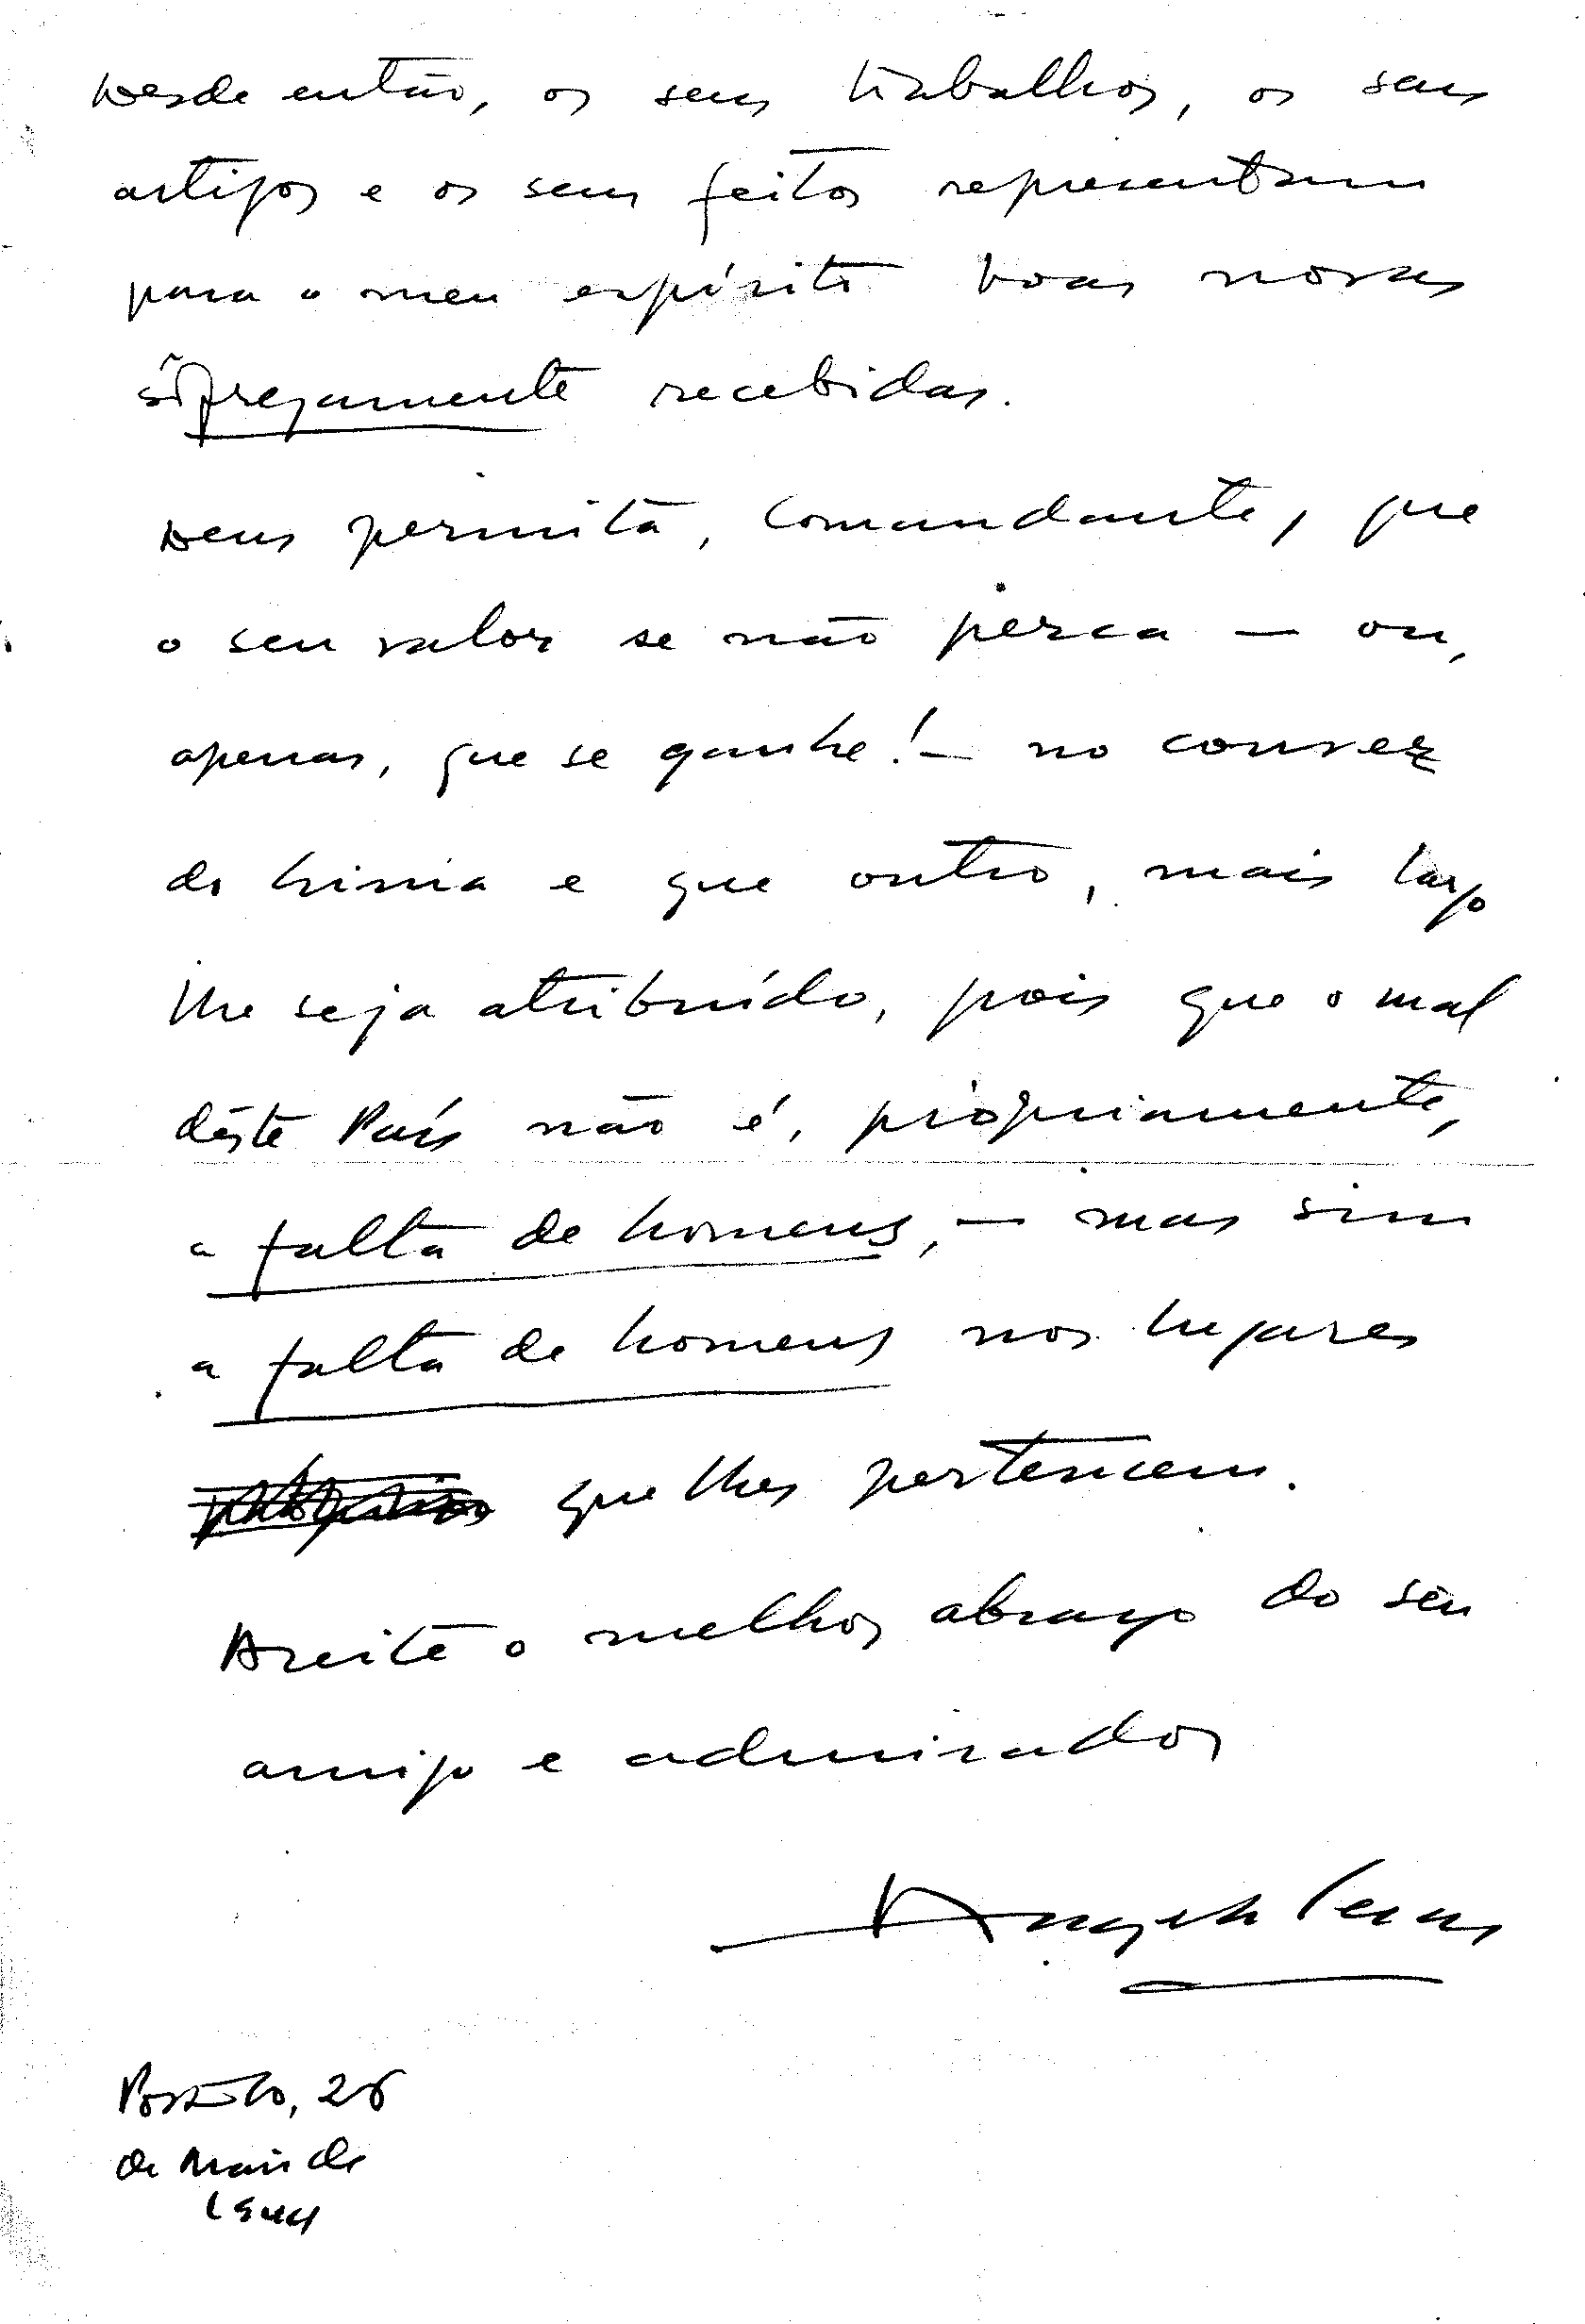 Desde então, os seus trabalhos, os seus
artigos e os seus feitos representam
para o meu espírito boas novas
sôfregamente recebidas.
Deus permita, Comandante, que
o seu valor se não perca — ou,
apenas, que se ganhe! — no convez
do e que outro, mais largo
lhe seja atribuído, pois que o mal
dêste País não é, propriamente,
a falta de homens, — mas sim
a falta de homens nos lugares
que lhes pertencem.
Aceite o melhor abraço do seu
amigo e admirador
de Maio de